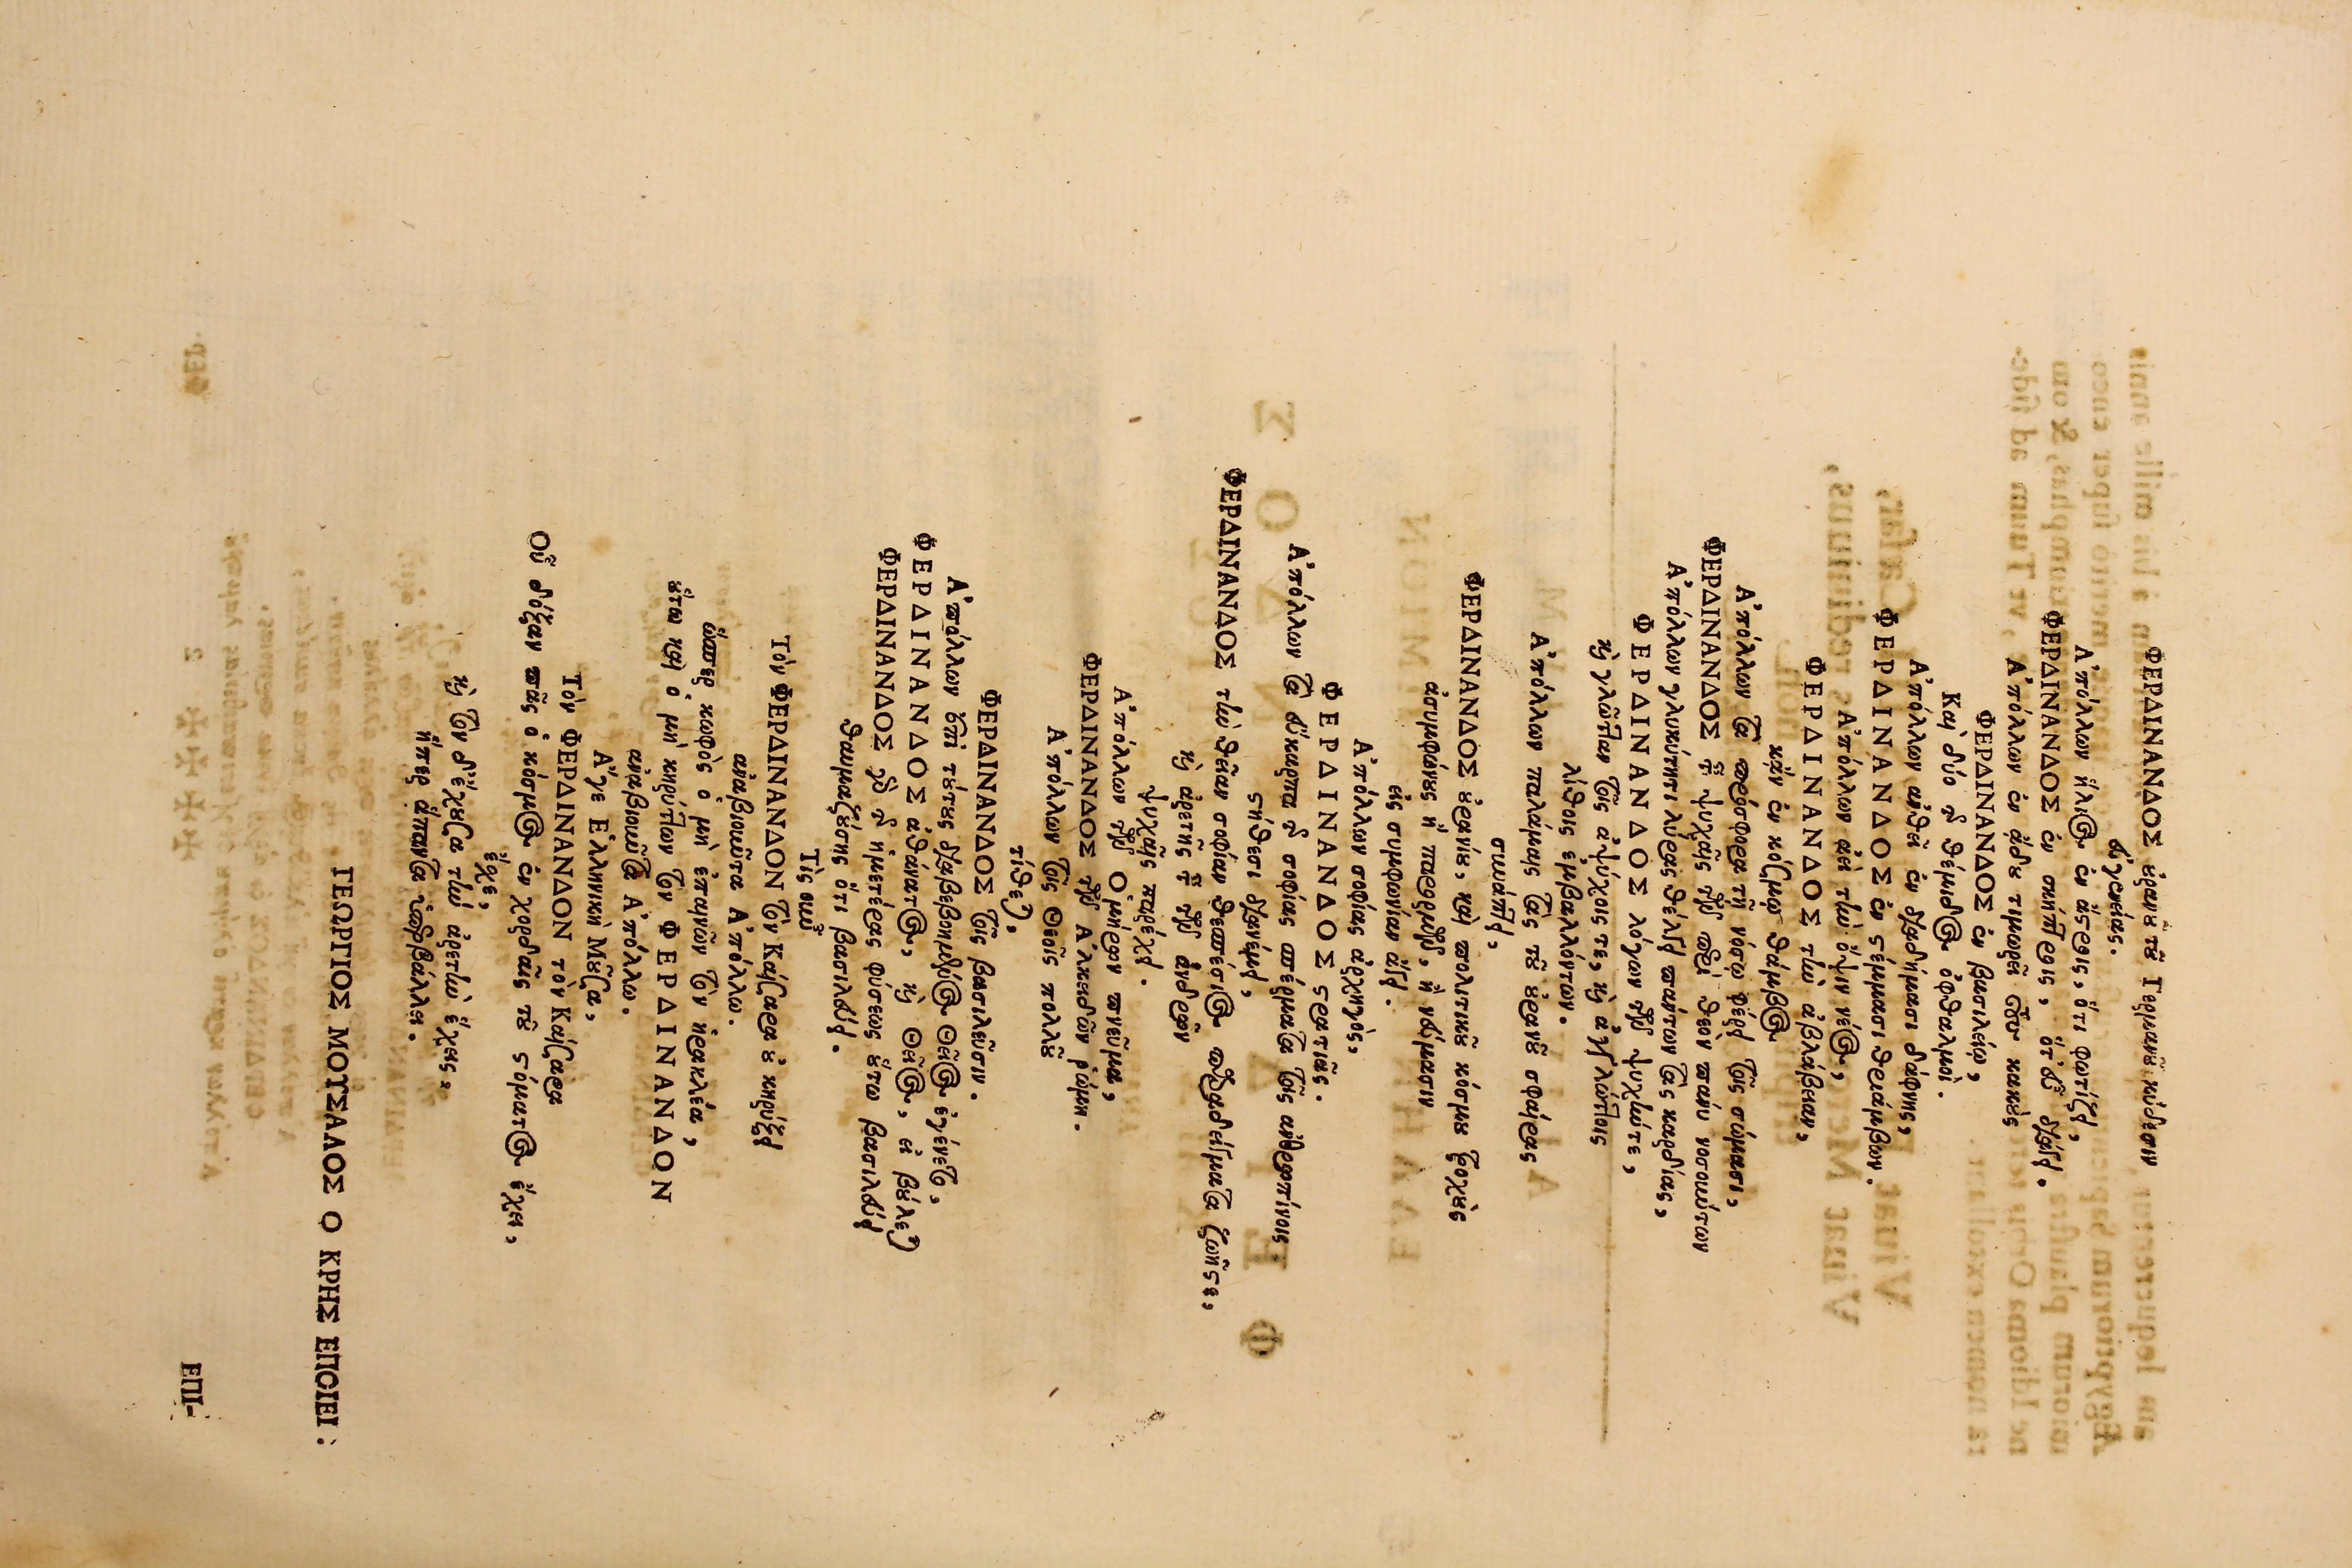 ΦΕΡΔΙΝΑΝΔΟΣ ἐρανῦ τῦ Γερμανῦ κύδεσιν
εὐγενείας.
Α᾽πόλλων ἥλιος ἐν ἄστροις, ὅτι φωτίζει,
ΦΕΡΔΙΝΑΝΔΟΣ ἐν σκήπτροις, διαυγεῖ.
Α᾽πόλλων ἐν ᾅδου τιμωρεῖ τοὺς κακοὺς
ΦΕΡΔΙΝΑΝΔΟΣ ἐν βασιλείῳ,
Καὶ δύο τ Θέμιδος ὀφθαλμοὶ.
Α᾽πόλλων ἀνθεῖ ἐν διαδήμασι δάφνης,
ΦΕΡΔΙΝΑΝΔΟΣ ἐν στέμμασι θριάμβων.
Α᾽πόλλων ἀεὶ τὴν ὄψιν νέος,
ΦΕΡΔΙΝΑΝΔΟΣ τὴν ἀβλάβειαν,
κᾂν ἐν κόσμῳ θάμβος
Α᾽πόλλων τὰ πρόσφορα τῇ νόσῳ φέρει τοῖς σώμασι,
ΦΕΡΔΙΝΑΝΔΟΣ ταῖς ψυχαῖς τῶν περὶ Θεὸν πάνυ νοσούντων
Α᾽πόλλων γλυκύτητι λύρας θέλγει πάντων τὰς καρδίας,
ΦΕΡΔΙΝΑΝΔΟΣ λόγων τῶν ψυχῶντε,
καὶ γλῶτταν τοῖς ἀψύχοις τε, καὶ ἀγλώττοις
λίθοις ἐμβαλλόντων.
Α᾽πόλλων παλάμαις τὰς τοῦ οὐρανοῦ σφαίρας
συνάπτει,
ΦΕΡΔΙΝΑΝΔΟΣ οὐρανίου, καὶ πολιτικοῦ κόσμου τροχοὺς
ἀσυμφώνους ἢ παραμυθεῖ, ἢ νεύμασιν
εἰς συμφωνίαν ἄγει.
Α᾽πόλλων σοφίας ἀρχηγὸς,
ΦΕΡΔΙΝΑΝΔΟΣ στρατιᾶς.
Α᾽πόλλων τὰ εὔκαρπα τ σοφίας σπέρματα τοῖς ἀνθρωπίνοις
στήθεσι διανέμει,
ΦΕΡΔΙΝΑΝΔΟΣ τὴν θείαν σοφίαν θεσπέσιος παραδείγματα ζωῆς τε,
καὶ ἀρετῆς τ τῶν ἀνδρῶν
ψυχαῖς παρέχει.
Α᾽πόλλων τῶν Ο᾽μήρων πνεῦμα,
ΦΕΡΔΙΝΑΝΔΟΣ τῶν Α᾽λκειδῶν ῥώμη.
Α᾽πόλλων τοῖς Θεοῖς πολλοῦ
τίθεται,
ΦΕΡΔΙΝΑΝΔΟΣ τοῖς βασιλεῦσιν.
Α᾽πόλλων ἐπὶ τούτους διαβεβοημένος Θεῖος ἐγένετο,
ΦΕΡΔΙΝΑΝΔΟΣ ἀθάνατος, καὶ Θεῖος, εἰ βούλεται
ΦΕΡΔΙΝΑΝΔΟΣ γὰρ τ ἡμετέρας φύσεως οὕτω βασιλεύει
θαυμαζούσης ὅτι βασιλεύει.
Τίς οὖν
Τὸν ΦΕΡΔΙΝΑΝΔΟΝ τὸν Καίσαρα οὐ κηρύξει
ἀναβιοῦντα Α᾽πόλλω.
ὥσπερ κωφὸς ὁ μὴ ἐπαινῶν τὸν ἡρακλέα,
οὕτω καὶ ὁ μὴ κηρύττων τὸν ΦΕΡΔΙΝΑΝΔΟΝ
ἀναβιοῦντα Α᾽πόλλω.
Α᾽γε Ε᾽λληνικὴ Μοῦσα,
Τὸν ΦΕΡΔΙΝΑΝΔΟΝ τὸν Καίσαρα
Οὗ δόξαν πᾶς ὁ κόσμος ἐν χορδαῖς τοῦ στόματος ἔχει,
ἔχε,
καὶ τὸν δ᾽ ἔχουσα τὴν ἀρετὴν ἔχεις,
ἥπερ ἅπαντα ὑπερβάλλει.
ΓΕΩΡΓΙΟΣ ΜΟΤΣΑΛΟΣ Ο ΚΡΗΣ ΕΠΟΙΕΙ:
ΕΠΙ-